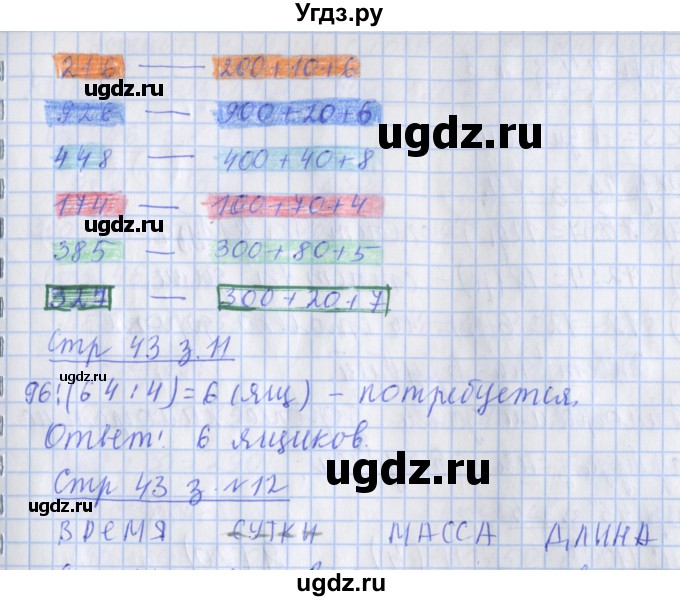 Угдз.ру
216 — 200+10+6
926 — 900+20+6
ugdz.ru
448 — 400+40+8
174 — 100+70+4
385 — 300+80+5
ugdz.ru
327 — 300+20+7
Стр 43 з.11
ugdz.ru
96:(64:4)=6 (ящ) – потребуется.
Ответ: 6 ящиков.
ugdz.ru
Стр 43 з. №12
ugdz.ru
ВРЕМЯ СУТКИ МАССА ДЛИНА
ugdz.ru